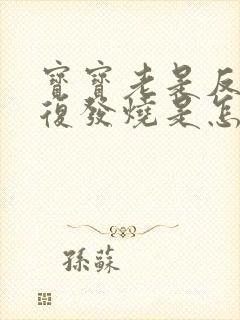 寶寶老是反
復發燒是怎
孫蘇